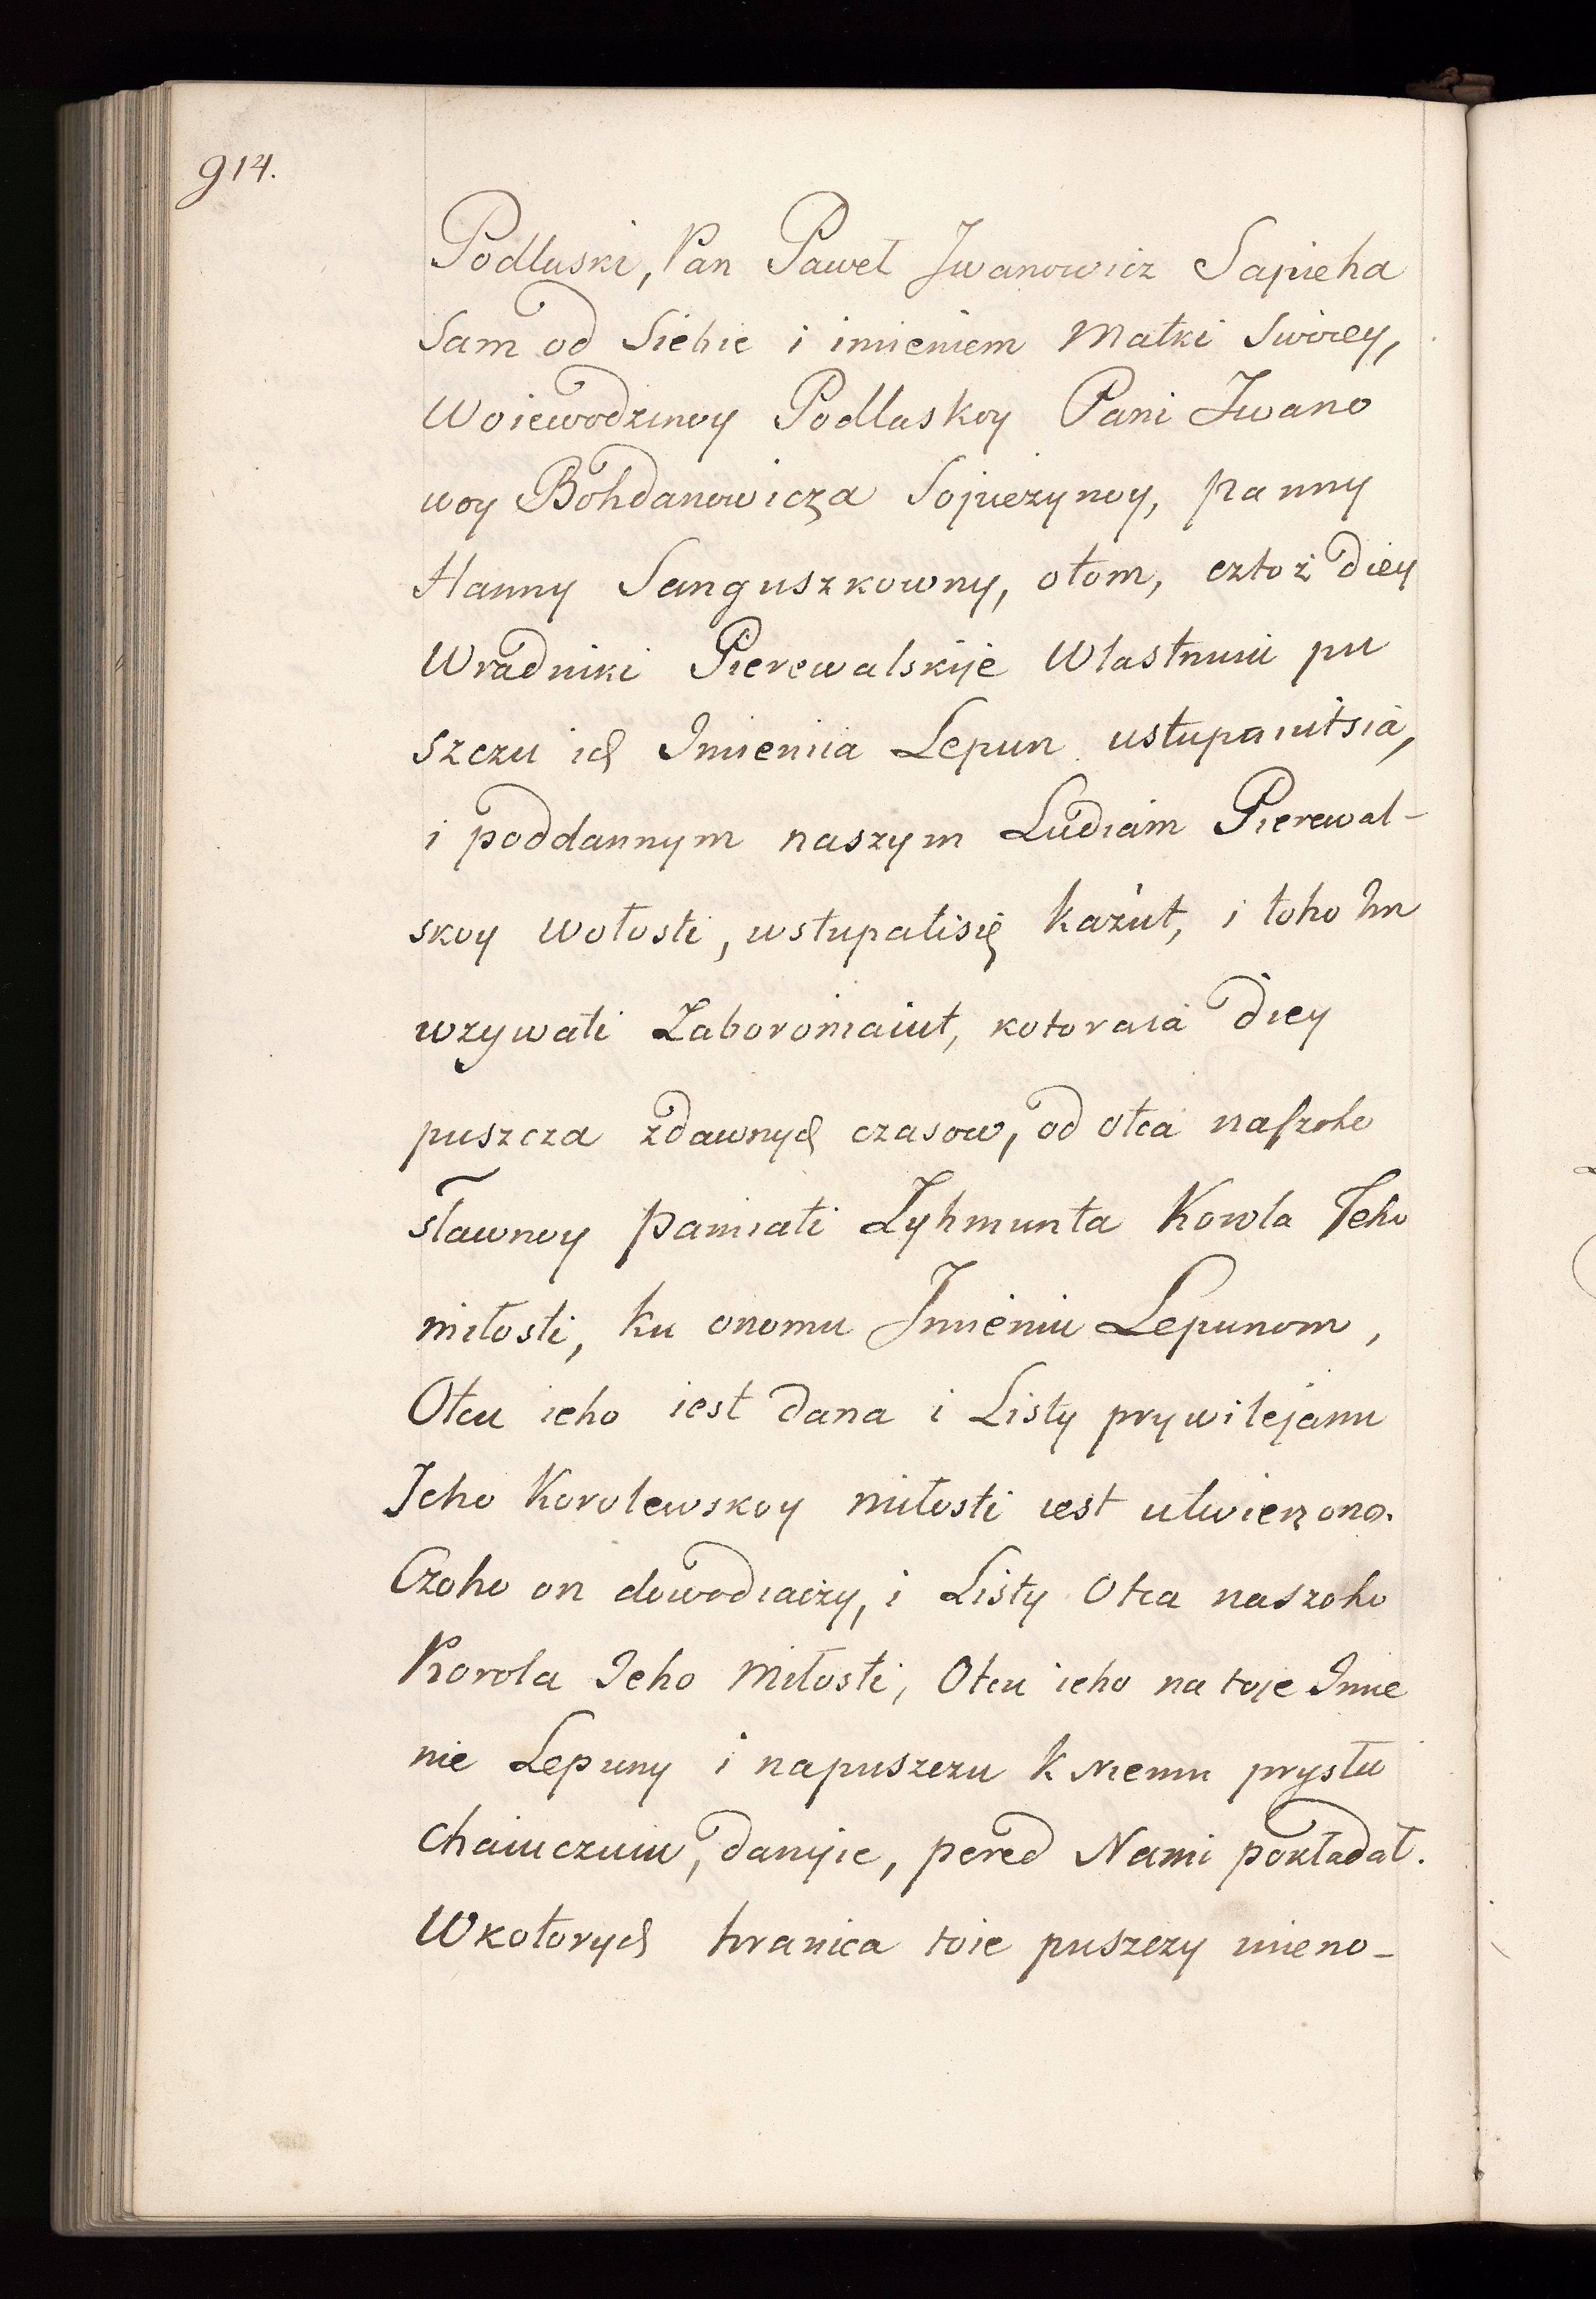 914.
Podluski, Pan Paweł Iwanowicz Sapieha
Sam od Siebie i imieniem Matki Swoiey,
Woiewodzinoy Podlaskoy Pani Iwano
woy Bohdanowicza Sopieżynoy, panny
Hanny Sanguszkowny, otom, cztoż diey
Wradniki Pierewalskije Wlastnuiu pu
szczu ich Imieniia Lepun ustupaiutsia,
i poddannym naszym Ludiam Pierewal-
skoy wołosti, wstupatisię każut, i toho Im
wzywati Zaboroniaiut, kotoraia diey
puszcza zdawnych czasow, od otca naszoho
sławnoy pamiati Zyhmunta Korola Jeho
miłosti, ku onomu Imieniu Lepunom,
Otcu ieho iest dana i Listy prywilejamu
Jeho Korolewskoy miłosti iest utwierzono.
Czoho on dowodiaczy, i Listy Otca naszoho
Korola Jeho Miłosti, Otcu ieho na toje Imie
nie Lepuny i napuszczu k Niemu prysłu
chaiuczuiu, danyie, pered Nami pokładał.
Wkotorych hranica toie puszczy imeno-